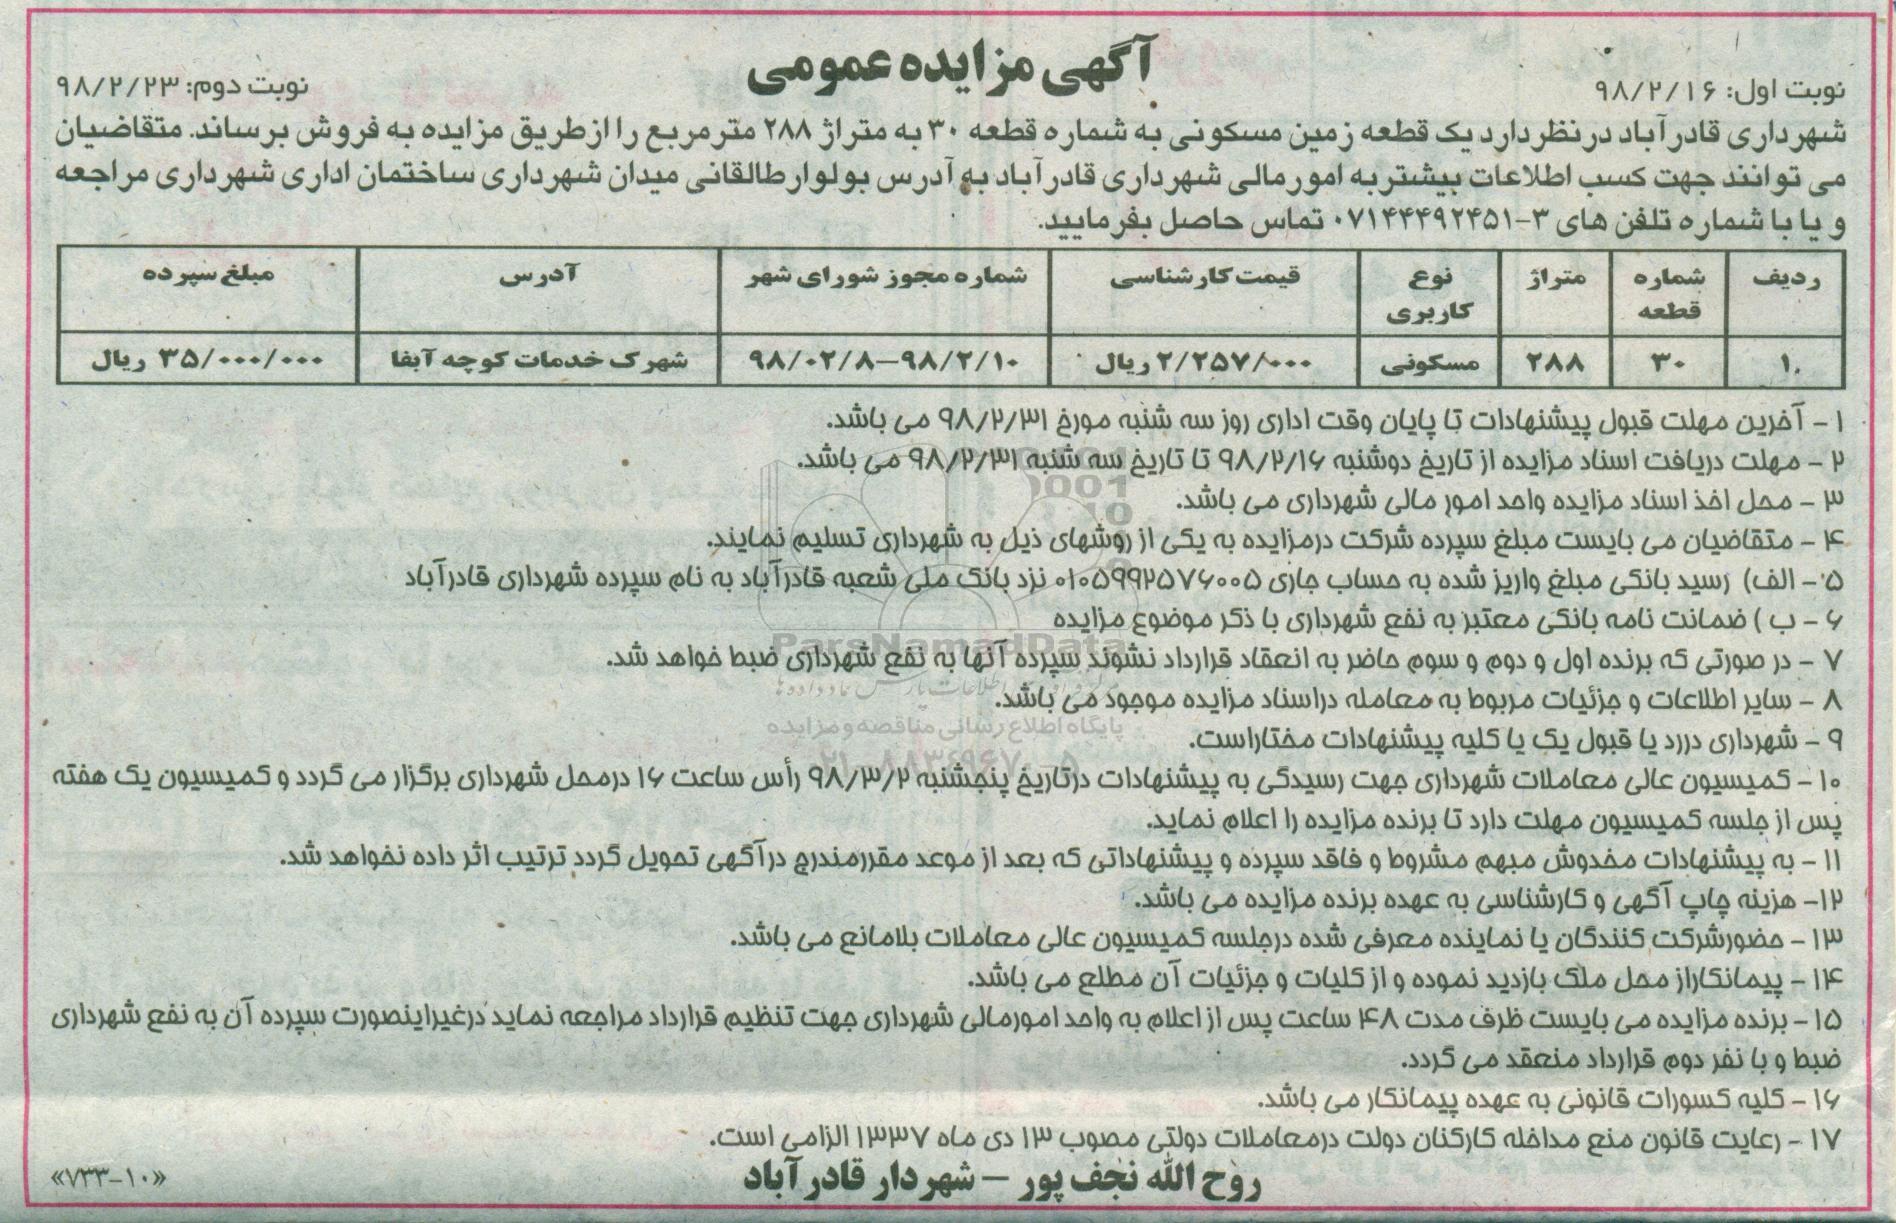 آگهی مزایده عمومی
نوبت اول: ۹۸/۲/۱۶
نوبت دوم: ۹۸/۲/۲۳
شهرداری قادرآباد درنظردارد یک قطعه زمین مسکونی به شماره قطعه ۳۰ به متراژ ۲۸۸ مترمربع را ازطریق مزایده به فروش برساند. متقاضیان
می توانند جهت کسب اطلاعات بیشتر به امورمالی شهرداری قادرآباد به آدرس بولوارطالقانی میدان شهرداری ساختمان اداری شهرداری مراجعه
و یا با شماره تلفن های ۳-۰۷۱۴۴۴۹۲۴۵۱ تماس حاصل بفرمایید.
ردیف | شماره قطعه | متراژ | نوع کاربری | قیمت کارشناسی | شماره مجوز شورای شهر | آدرس | مبلغ سپرده
۱ | ۳۰ | ۲۸۸ | مسکونی | ۲/۲۵۷/۰۰۰ ریال | ۹۸/۲/۱۰-۹۸/۰۲/۸ | شهرک خدمات کوچه آبفا | ۳۵/۰۰۰/۰۰۰ ریال
۱ - آخرین مهلت قبول پیشنهادات تا پایان وقت اداری روز سه شنبه مورخ ۹۸/۲/۳۱ می باشد.
۲ - مهلت دریافت اسناد مزایده از تاریخ دوشنبه ۹۸/۲/۱۶ تا تاریخ سه شنبه ۹۸/۲/۳۱ می باشد.
۳ - محل اخذ اسناد مزایده واحد امور مالی شهرداری می باشد.
۴ - متقاضیان می بایست مبلغ سپرده شرکت درمزایده به یکی از روشهای ذیل به شهرداری تسلیم نمایند.
۵ - الف) رسید بانکی مبلغ واریز شده به حساب جاری ۰۱۰۵۹۹۲۵۷۶۰۰۵ نزد بانک ملی شعبه قادرآباد به نام سپرده شهرداری قادرآباد
۶ - ب ) ضمانت نامه بانکی معتبر به نفع شهرداری با ذکر موضوع مزایده
۷ - در صورتی که برنده اول و دوم و سوم حاضر به انعقاد قرارداد نشوند سپرده آنها به نفع شهرداری ضبط خواهد شد.
۸ - سایر اطلاعات و جزئیات مربوط به معامله دراسناد مزایده موجود می باشد.
۹ - شهرداری دررد یا قبول یک یا کلیه پیشنهادات مختاراست.
۱۰ - کمیسیون عالی معاملات شهرداری جهت رسیدگی به پیشنهادات درتاریخ پنجشنبه ۹۸/۳/۲ رأس ساعت ۱۶ درمحل شهرداری برگزار می گردد و کمیسیون یک هفته
پس از جلسه کمیسیون مهلت دارد تا برنده مزایده را اعلام نماید.
۱۱ - به پیشنهادات مخدوش مبهم مشروط و فاقد سپرده و پیشنهاداتی که بعد از موعد مقررمندرج درآگهی تحویل گردد ترتیب اثر داده نخواهد شد.
۱۲- هزینه چاپ آگهی و کارشناسی به عهده برنده مزایده می باشد.
۱۳ - حضورشرکت کنندگان یا نماینده معرفی شده درجلسه کمیسیون عالی معاملات بلامانع می باشد.
۱۴ - پیمانکاراز محل ملک بازدید نموده و از کلیات و جزئیات آن مطلع می باشد.
۱۵ - برنده مزایده می بایست ظرف مدت ۴۸ ساعت پس از اعلام به واحد امورمالی شهرداری جهت تنظیم قرارداد مراجعه نماید درغیراینصورت سپرده آن به نفع شهرداری
ضبط و با نفر دوم قرارداد منعقد می گردد.
۱۶ - کلیه کسورات قانونی به عهده پیمانکار می باشد.
۱۷ - رعایت قانون منع مداخله کارکنان دولت درمعاملات دولتی مصوب ۱۳ دی ماه ۱۳۳۷ الزامی است.
روح الله نجف پور - شهردار قادرآباد
«۷۳۳-۱۰»
ParsNamadData
پایگاه اطلاع رسانی مناقصه و مزایده
۰۲۱-۸۸۳۴۹۶۷۰-۵